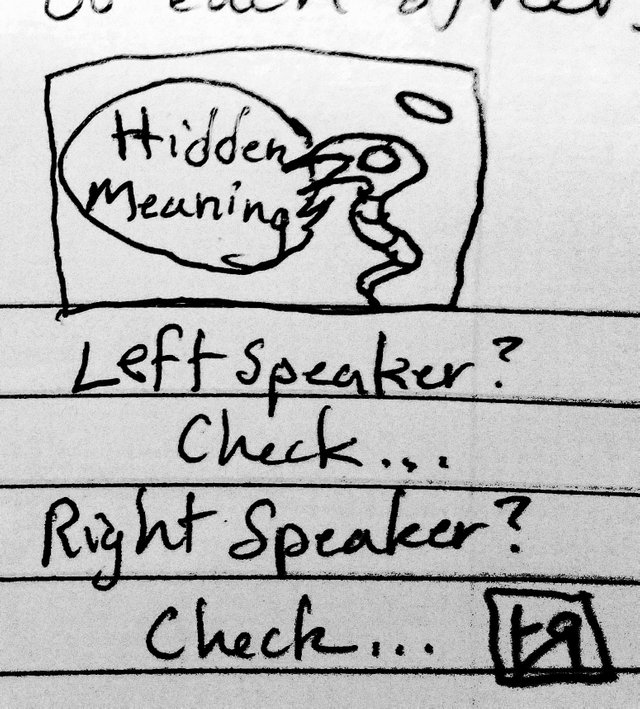 Hidden
Meaning
Left Speaker?
Check...
Right Speaker?
Check...